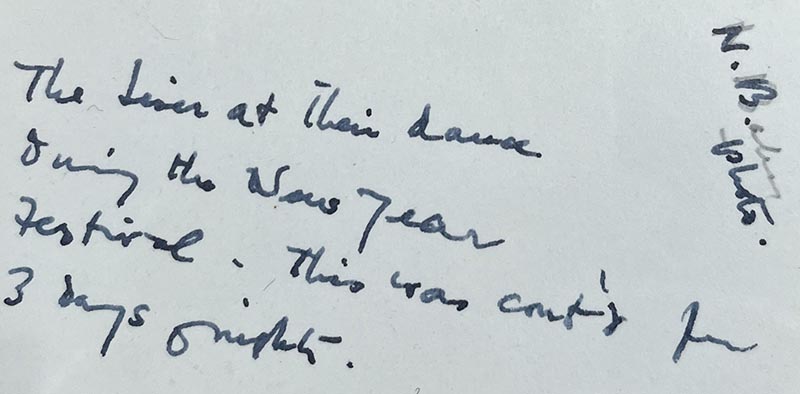 The Lisu at their dance
during the New Year
Festival. This was cont'd for
3 days & nights.
N. B.
photo.